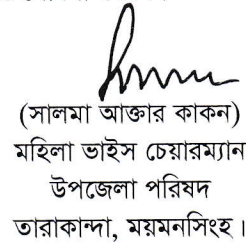 (সালমা আক্তার কাকন)
মহিলা ভাইস চেয়ারম্যান
উপজেলা পরিষদ
তারাকান্দা, ময়মনসিংহ।